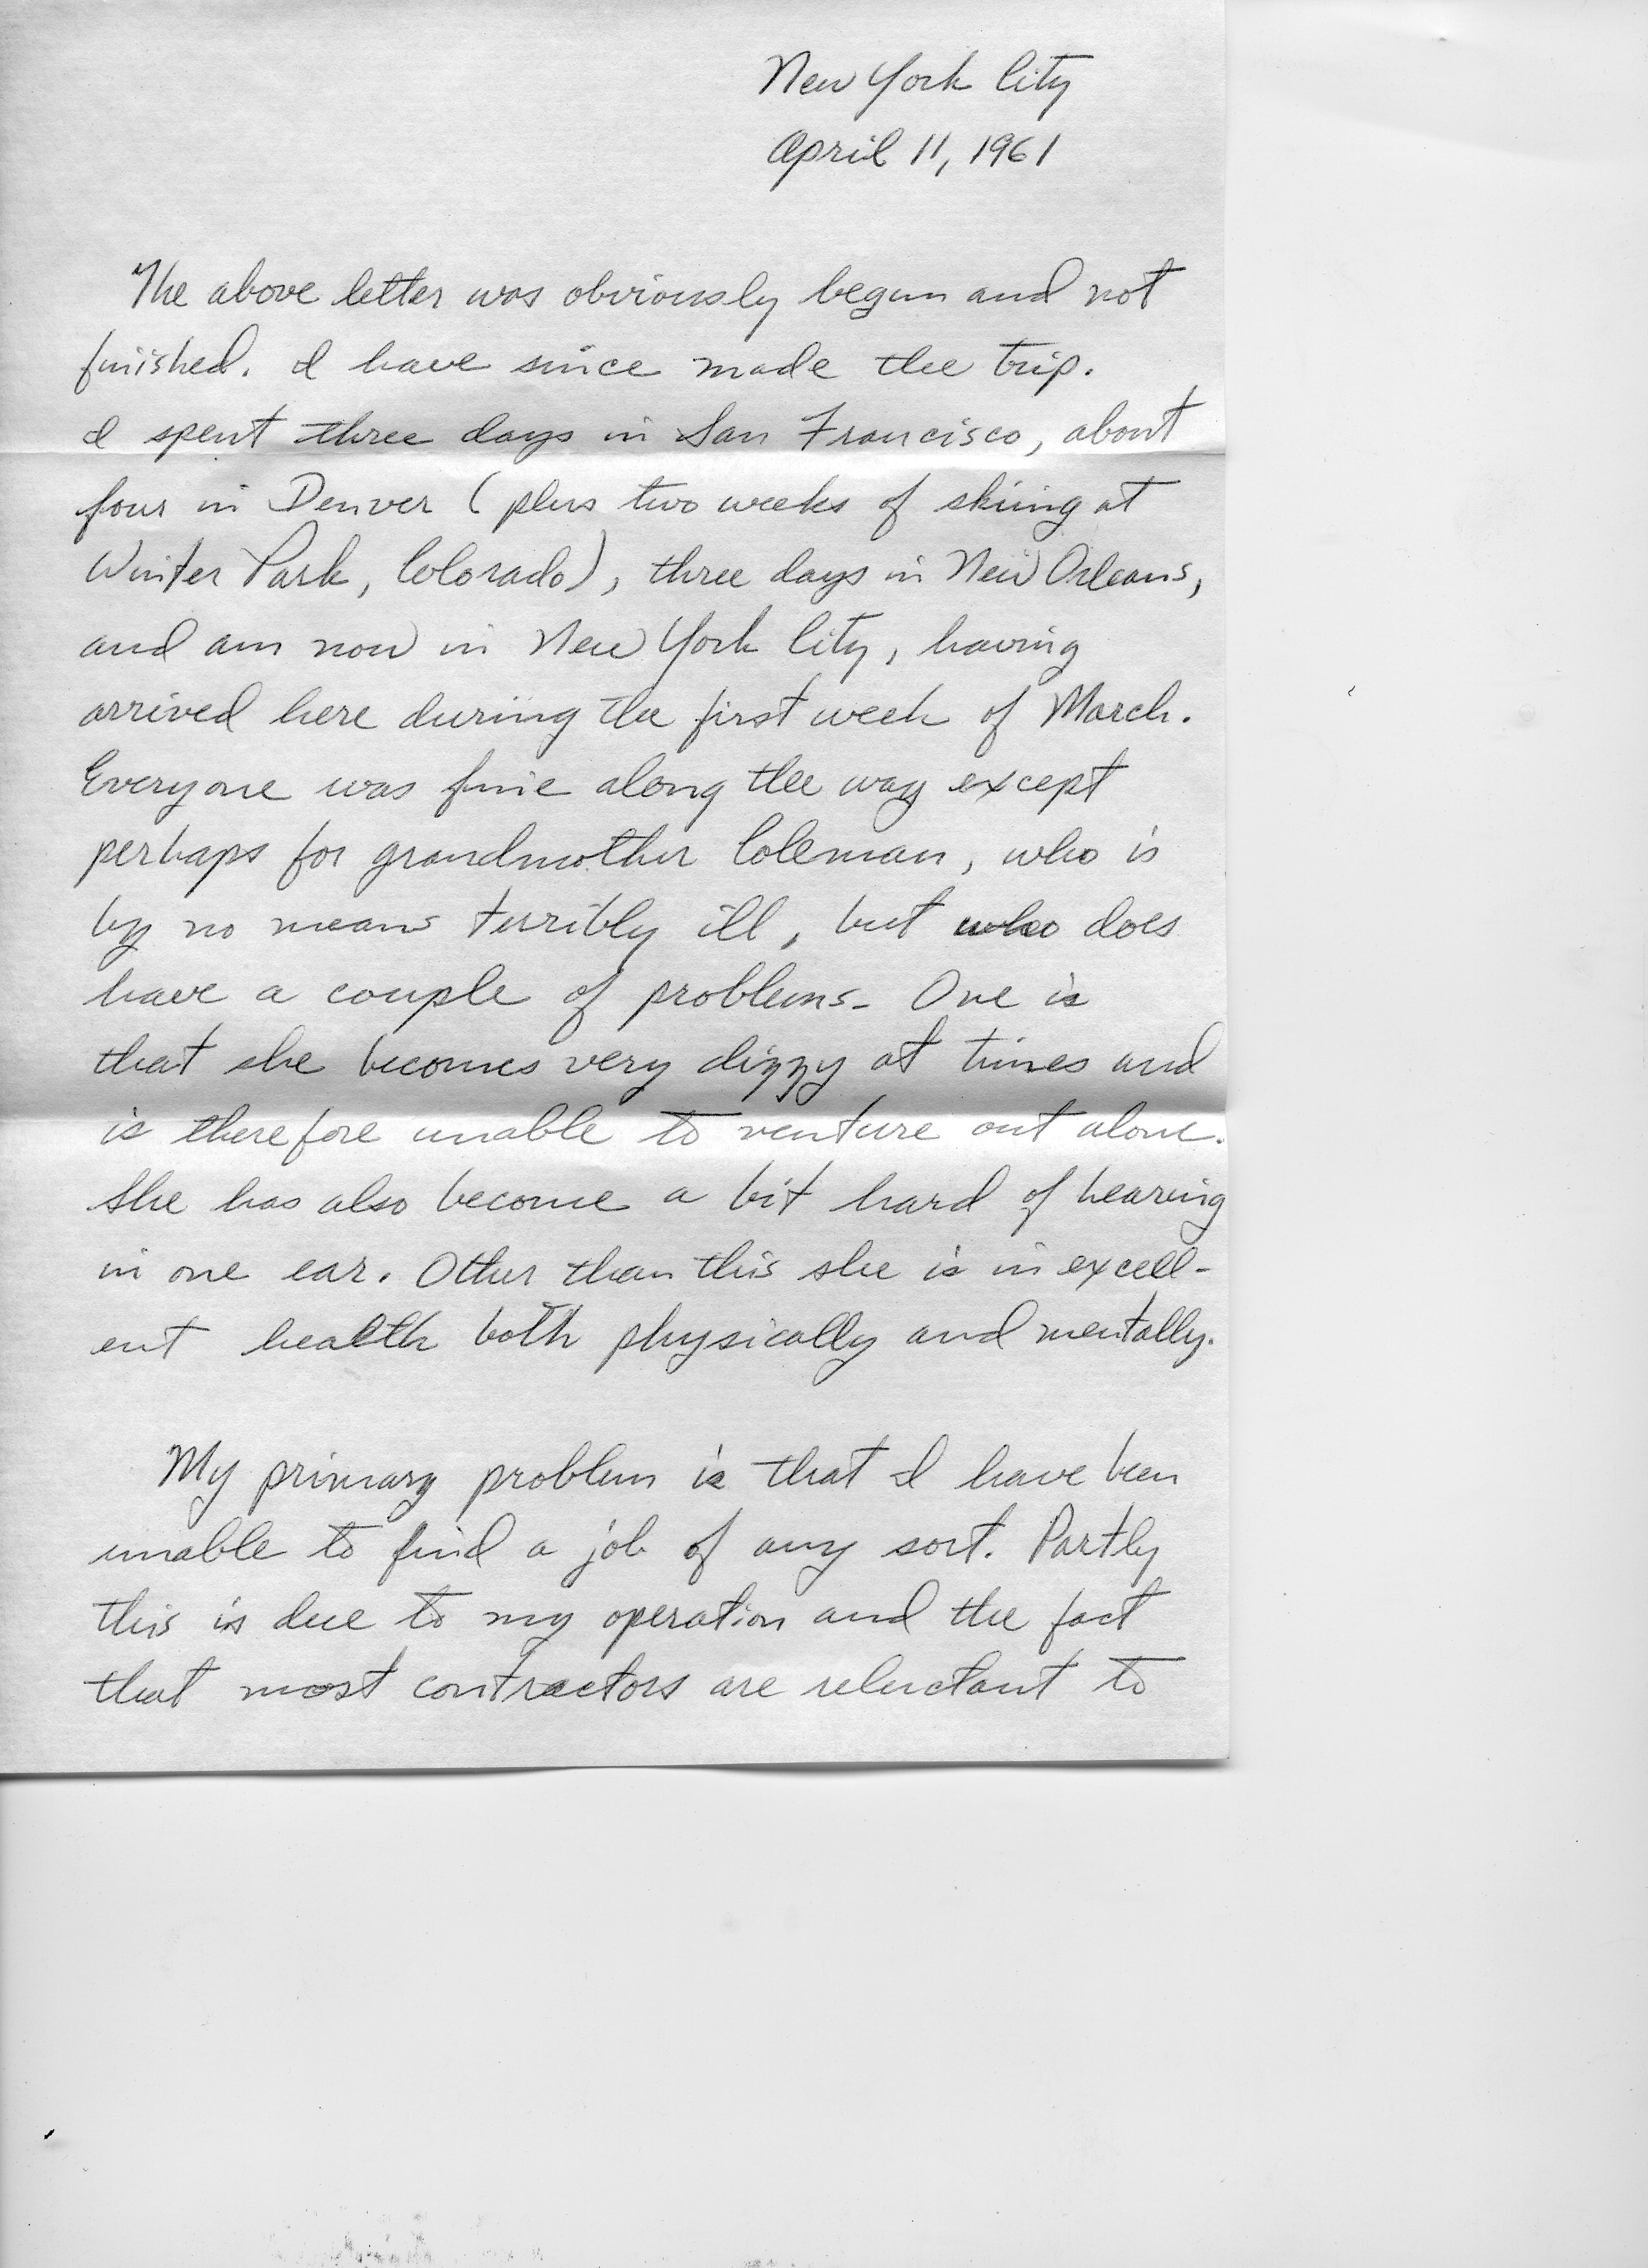 New York City
April 11, 1961
The above letter was obviously begun and not
finished. I have since made the trip.
I spent three days in San Francisco, about
four in Denver (plus two weeks of skiing at
Winter Park, Colorado), three days in New Orleans,
and am now in New York City, having
arrived here during the first week of March.
Everyone was fine along the way except
perhaps for grandmother Coleman, who is
by no means terribly ill, but who does
have a couple of problems. One is
that she becomes very dizzy at times and
is therefore unable to venture out alone.
She has also become a bit hard of hearing
in one ear. Other than this she is in excell-
ent health both physically and mentally.
My primary problem is that I have been
unable to find a job of any sort. Partly
this is due to my operation and the fact
that most contractors are reluctant to